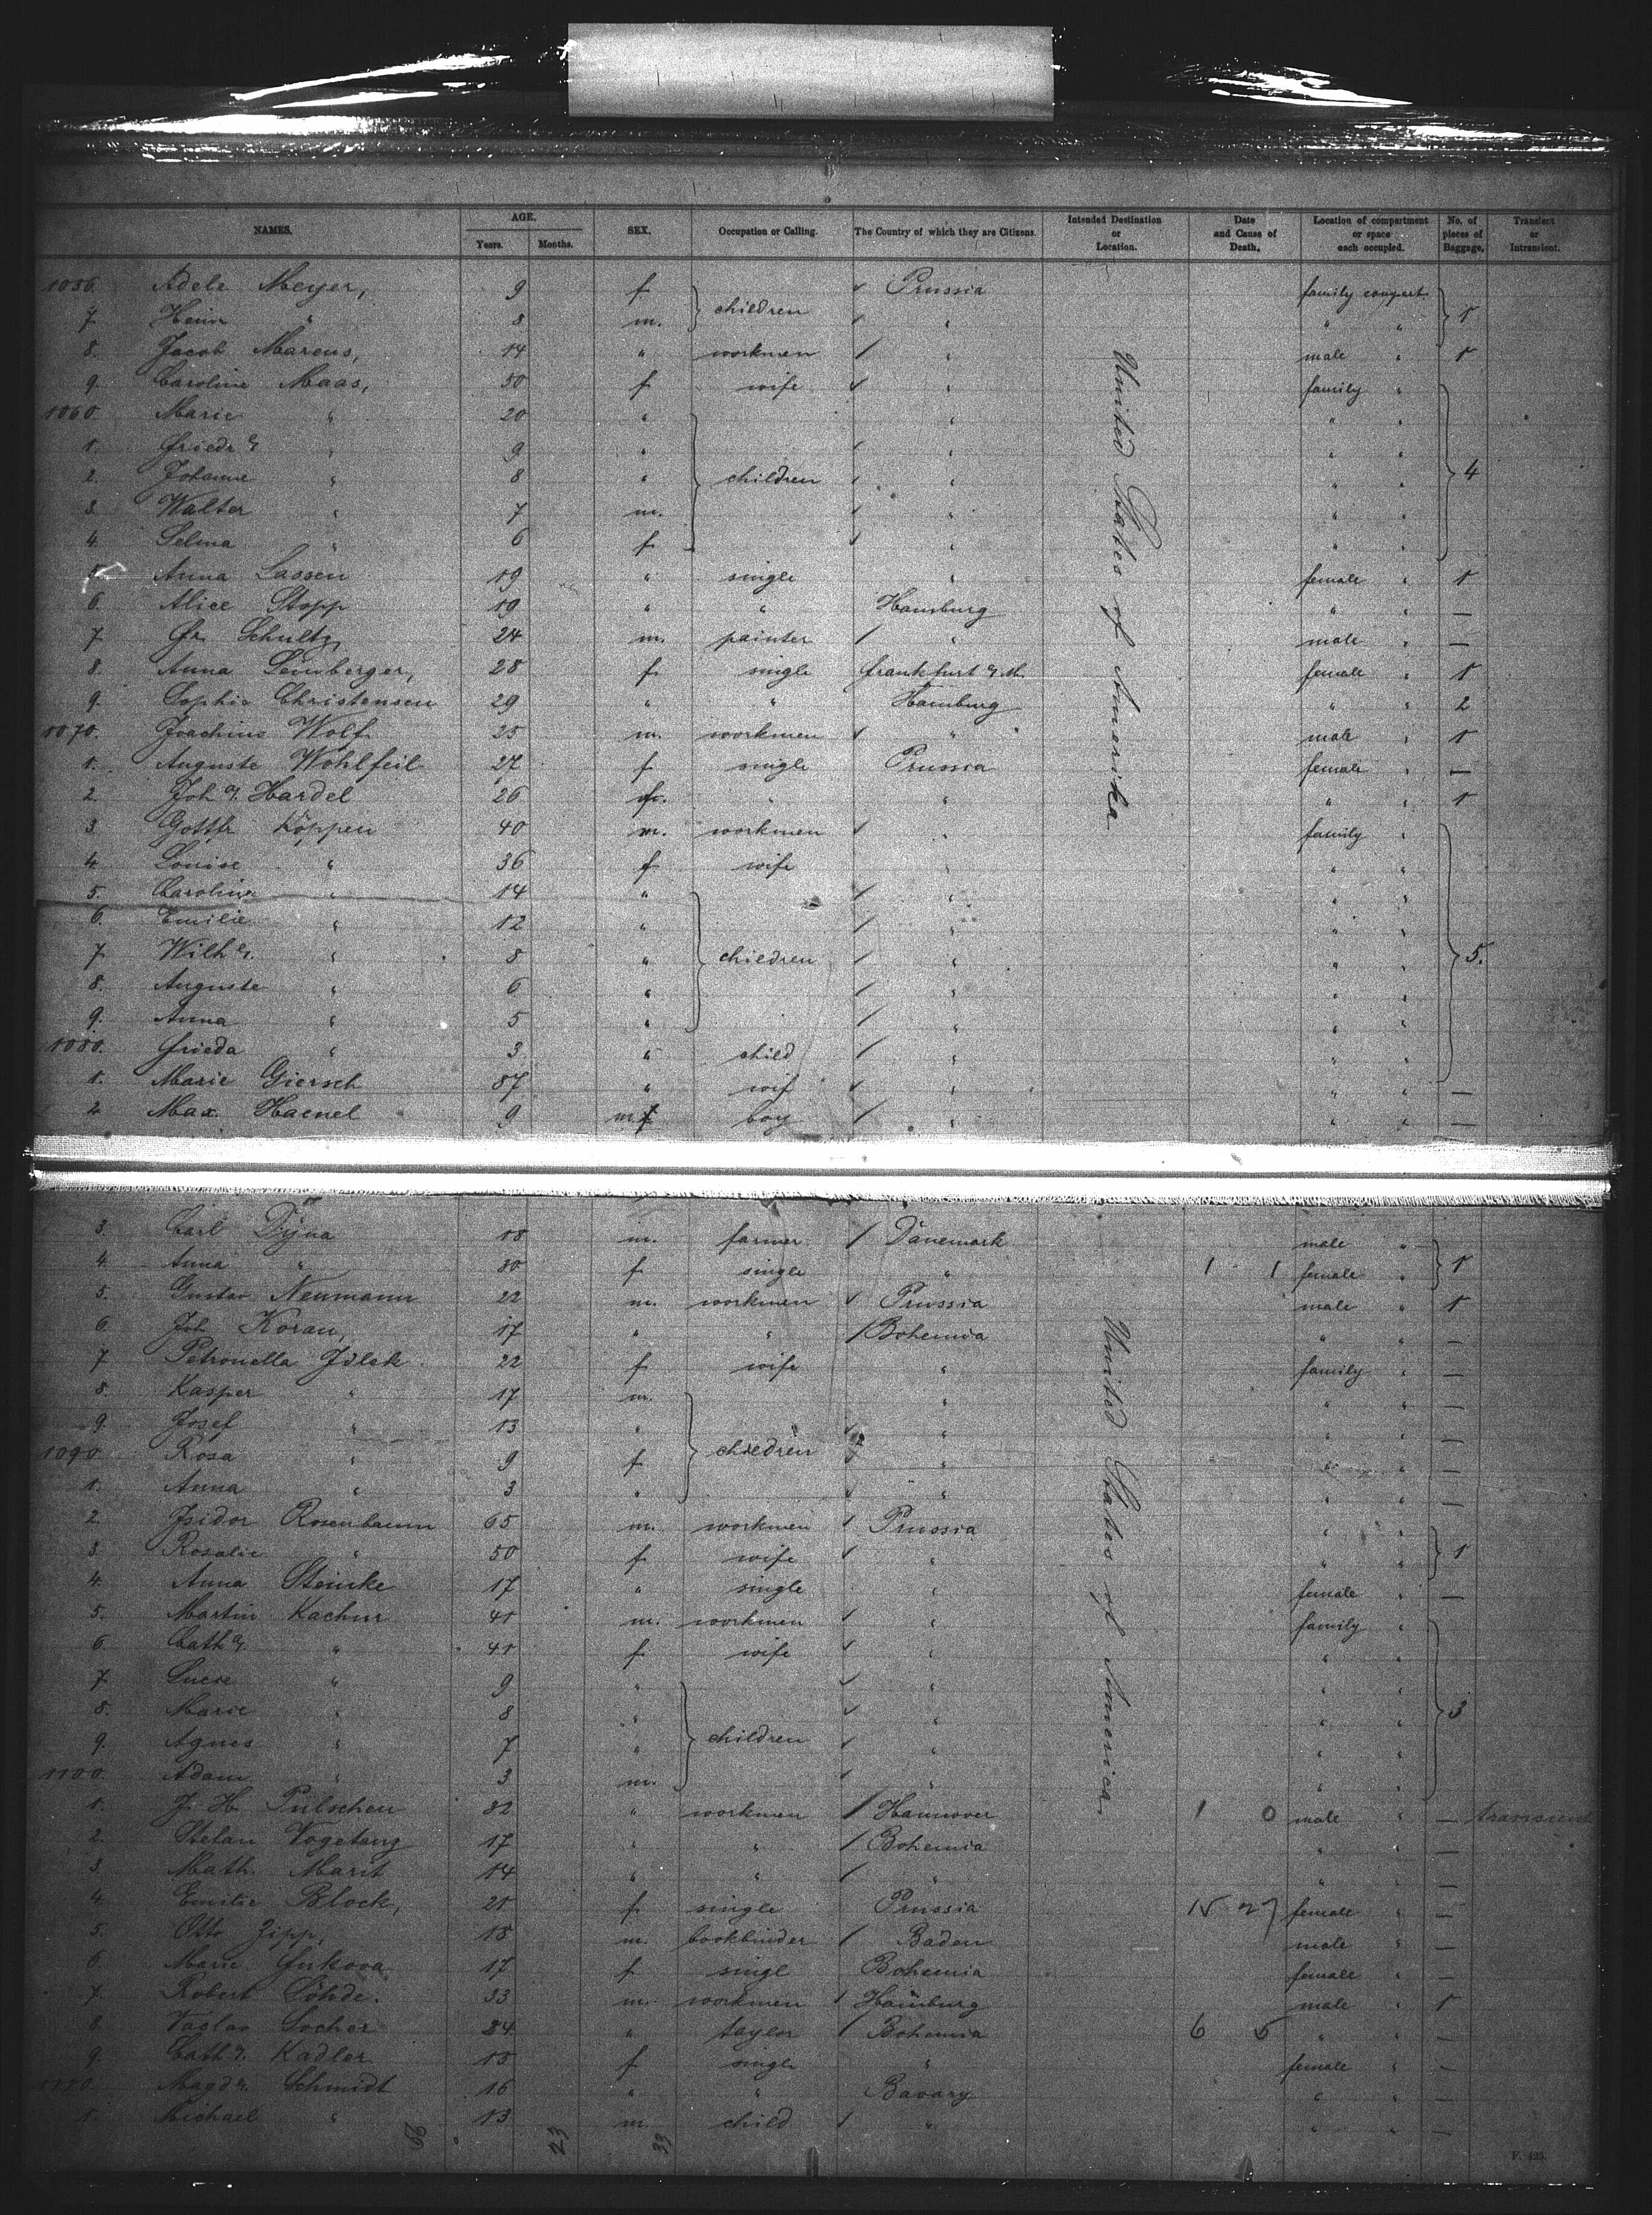 NAMES. AGE. Years. Months. SEX. Occupation or Calling. The Country of which they are Citizens. Intended Destination or Location. Date and Cause of Death. Location of compartment or space each occupied. No. of pieces of Baggage. Transient or Intransient.
1056. Adele Meyer, 9 f } children Prussia family compart. } 1
7. Heinr " 8 m. " " "
8. Jacob Marcus, 14 " workmen " male " 1
9. Caroline Maas, 50 f wife " family "
1060. Marie " 20 " " " "
1. Friedr " 9 " " " "
2. Johanne " 8 " children " " " 4
3. Walter " 7 m. " " "
4. Selma " 6 f " " "
5. Anna Lassen 19 " single " female " 1
6. Alice Stopp 19 " " Hamburg " " —
7. Fr. Schultz, 24 m. painter " male " —
8. Anna 28 f. single Frankfurt a/M. female " 1
9. Sophie Christensen 29 " " Hamburg " " 2
1070. Joachim Wolf 25 m. workmen " male " 1
1. Auguste Wohlfeil 27 f single Prussia female " —
2. Joh a. Hardel 26 f. " " " " 1
3. Gottfr Köppen 40 m. workmen " family "
4. Louise " 36 f wife " " "
5. Caroline " 14 " " " "
6. Emilie " 12 " " " "
7. Wilh a. " 8 " children " " " 5.
8. Auguste " 6 " " " "
9. Anna " 5 " " " "
1080. Frieda " 3 " child " " "
1. Marie Giersch 87 " wif " " " —
2. Max Haenel 9 m boy " " " —
United States of Amerika
3. Carl Dyna 18 m. farmer Dänemark male "
4. Anna " 30 f single " 1 1 female " } 1
5. Gustav Neumann 22 m. workmen Prussia male " 1
6. Joh Koran, 17 " " Bohemia " " —
7. Petronella Jilek 22 f wife " family " —
8. Kasper " 17 m. " " " —
9. Josef " 13 " " " " —
1090. Rosa " 9 f children " " " —
1. Anna " 3 " " " " —
2. Isidor Rosenbaum 65 m. workmen Prussia " "
3. Rosalie " 50 f wife " " " } 1
4. Anna Steinke 17 " single " female " —
5. Martin Kachur 41 m. workmen " family "
6. Cath a. " 41 f wife " " "
7. Lucie " 9 " " " "
8. Marie " 8 " " " " 3
9. Agnes " 7 " children " " "
1100. Adam " 3 m. " " "
1. J. H. Pülschen 32 " workmen Hannover 1 0 male " — transient
2. Stefan Vogetanz 17 " " Bohemia " " —
3. Math. Marit 14 " " " " " —
4. Emilie Block, 21 f single Prussia 15 27 female " —
5. Otto Zipp, 18 m. bookbinder Baden male " —
6. Marie 17 f singl Bohemia female " —
7. Robert Löhde. 33 m. workmen Hamburg male " 1
8. Vaclav Socher 24 " taylor Bohemia 6 5 " " —
9. Cath a. Kadler 15 f single " female " —
1110. Magd a. Schmidt 16 " " Bavary " " —
1. Michael " 13 m child " " " —
United States of America.
23 33
F. 425.